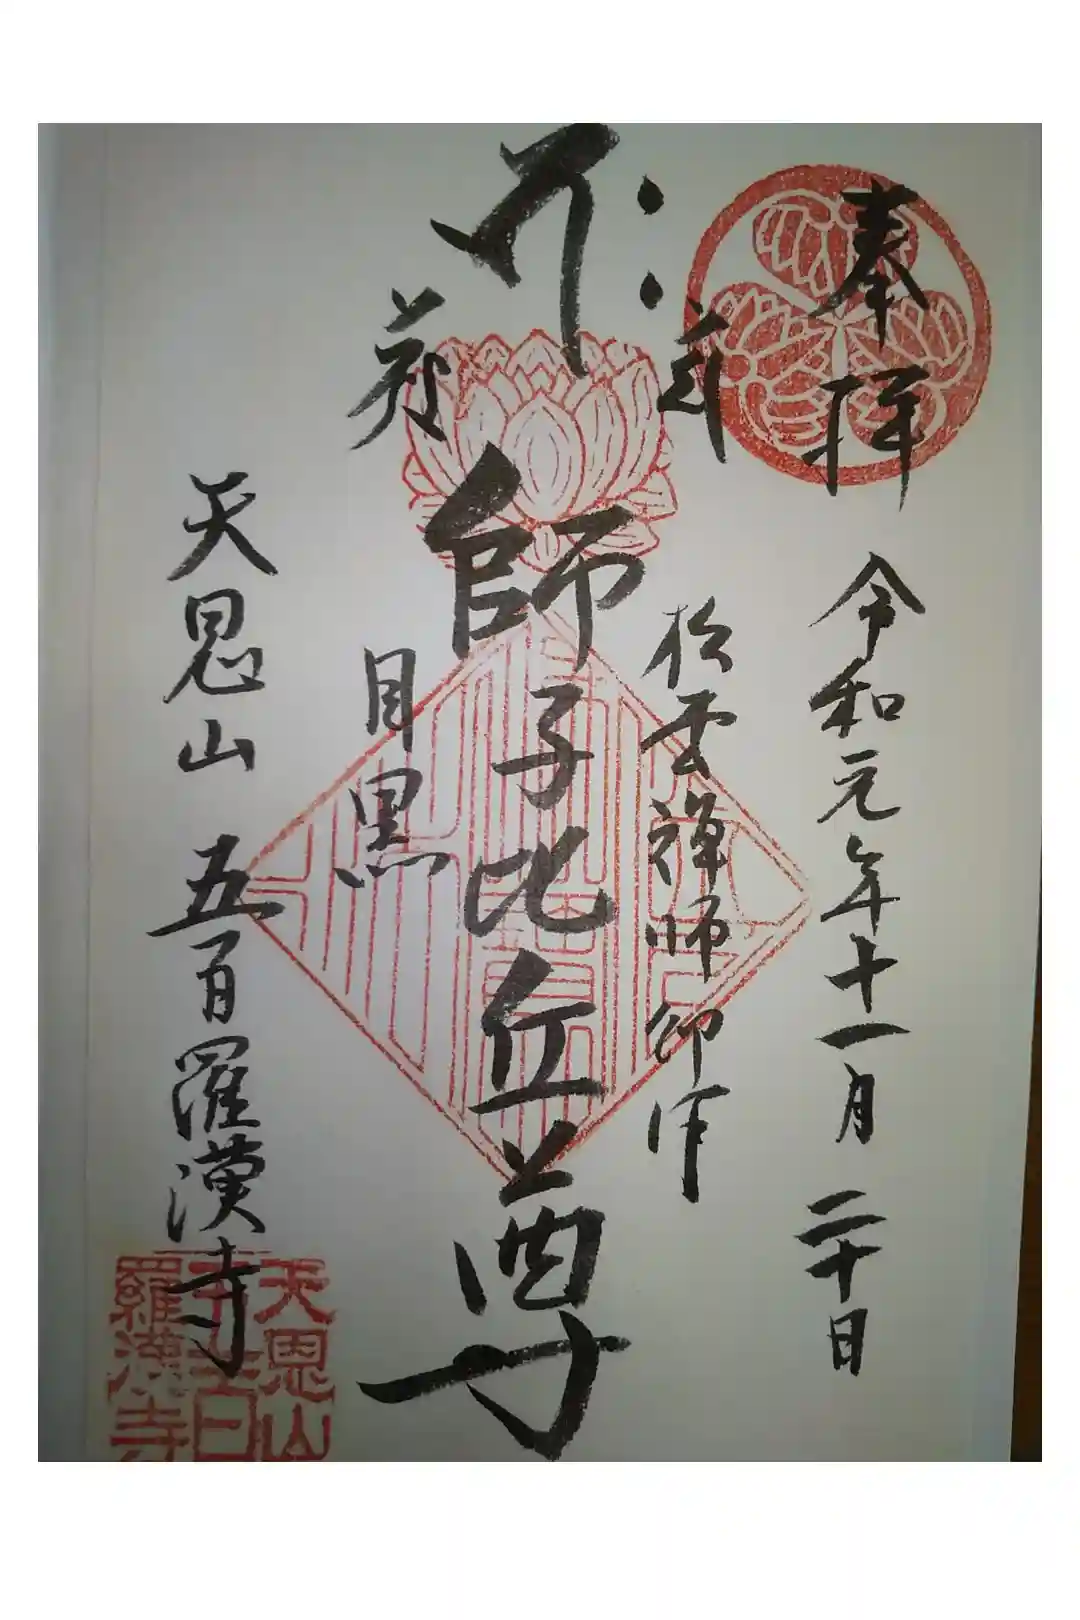 奉拝
令和元年十一月二十日
松雲禅師御作
師子比丘尊
目黒
天恩山 五百羅漢寺
天恩山
五百
羅漢寺